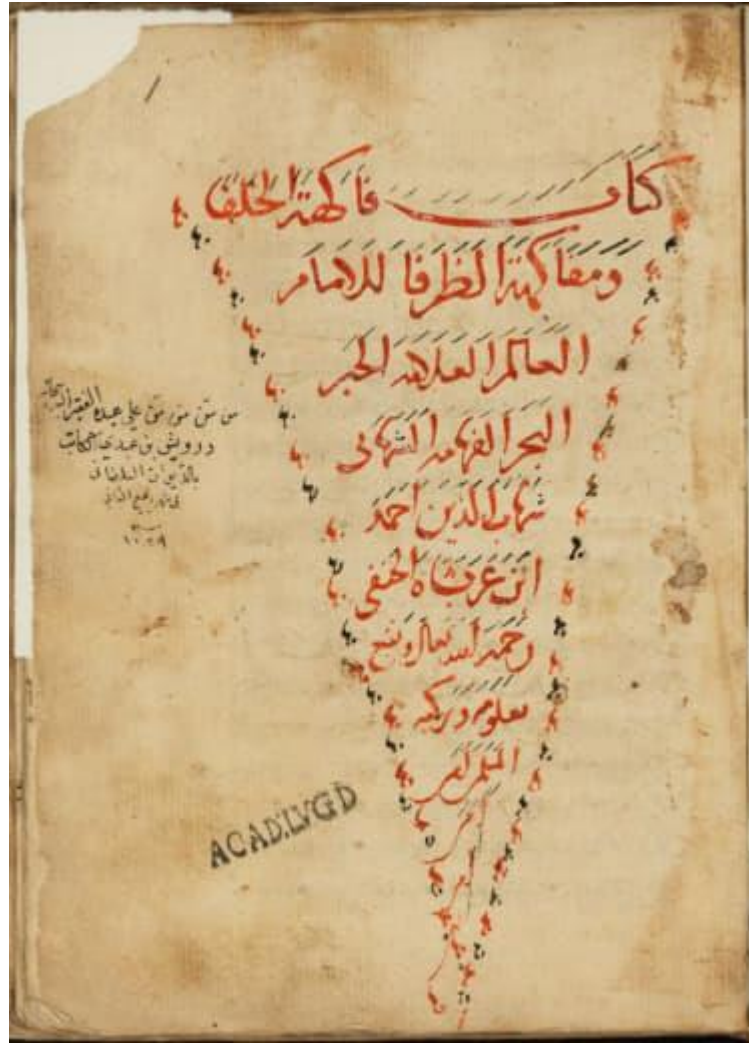 كتاب فاكهة الخلفا
ومفاكهة الظرفا للامام
العالم العلامة الحبر
البحر الفهامة الشهابى
شهاب الدين احمد
ابن عربشاه الحنفى
رحمه الله تعالى ونفع
بعلومه وبركته
المسلمين
امين
من من من من على عبده الفقير
درويش بن
١٠٣٩
ACAD.LVGD